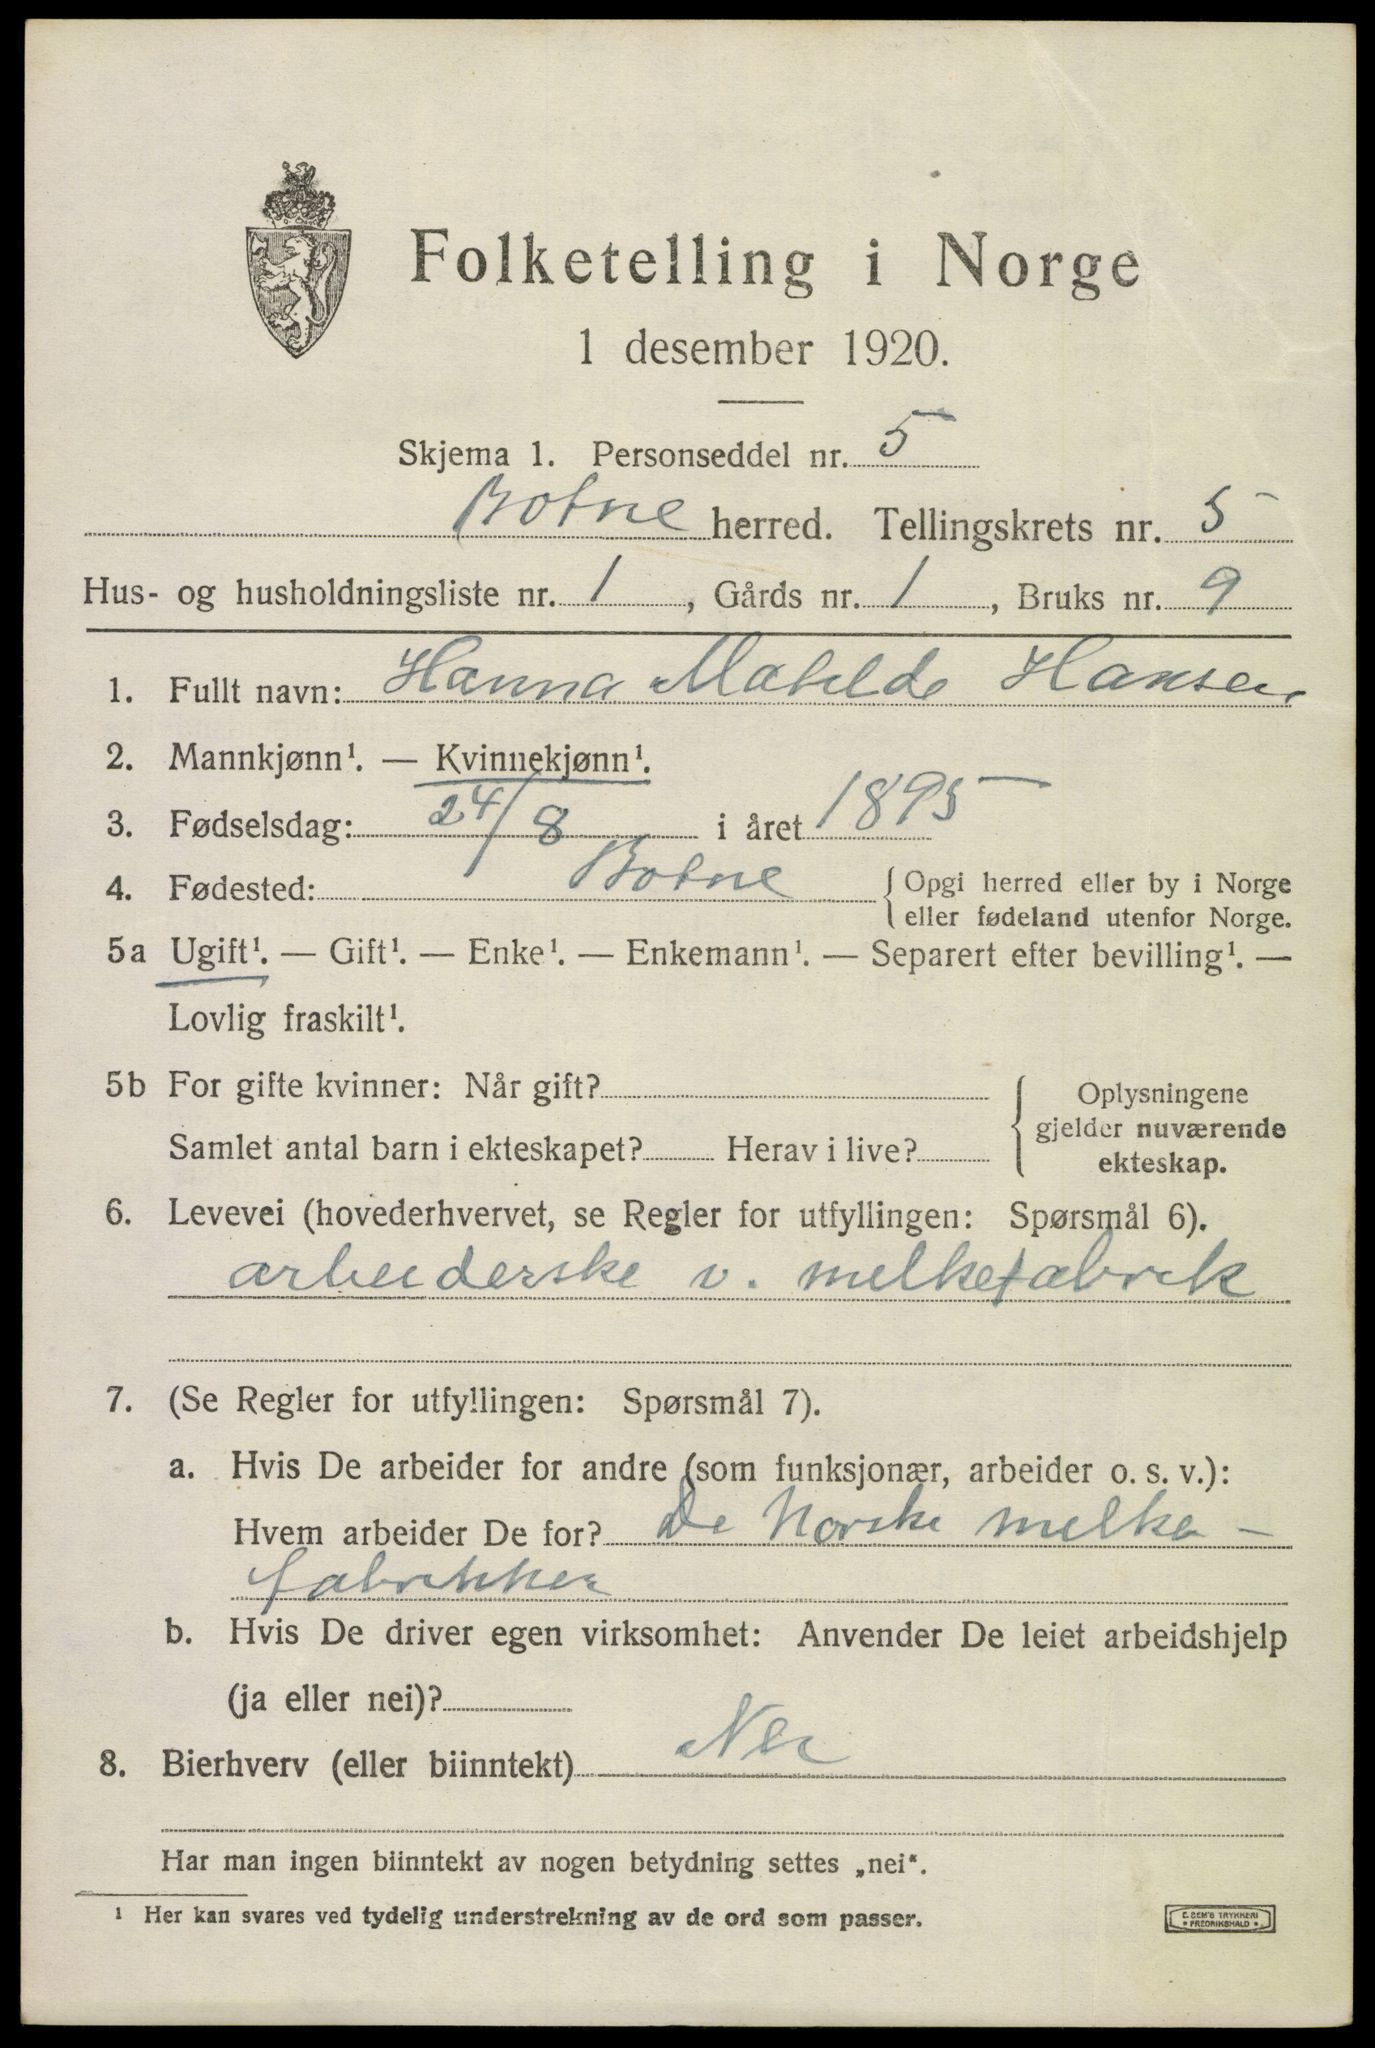 Folketelling i Norge
1 desember 1920.
Skjema 1. Personseddel nr. 5
Botne herred. Tellingskrets nr. 5
Hus- og husholdningsliste nr. 1, Gårds nr. 1, Bruks nr. 9
1. Fullt navn: Hanna Matilde Hansen
2. Mannkjønn¹. — Kvinnekjønn¹.
3. Fødselsdag: 24/8 i året 1895
4. Fødested: Botne { Opgi herred eller by i Norge
eller fødeland utenfor Norge.
5a Ugift¹. — Gift¹. — Enke¹. — Enkemann¹. — Separert efter bevilling¹. —
Lovlig fraskilt¹.
5b For gifte kvinner: Når gift?
Samlet antal barn i ekteskapet? Herav i live?
{ Oplysningene
gjelder nuværende
ekteskap.
6. Levevei (hovederhvervet, se Regler for utfyllingen: Spørsmål 6).
arbeiderske v. melkefabrik
7. (Se Regler for utfyllingen: Spørsmål 7).
a. Hvis De arbeider for andre (som funksjonær, arbeider o. s. v.):
Hvem arbeider De for? De Norske melke-
fabrikker
b. Hvis De driver egen virksomhet: Anvender De leiet arbeidshjelp
(ja eller nei)?
8. Bierhverv (eller biinntekt) Nei
Har man ingen biinntekt av nogen betydning settes „nei".
¹ Her kan svares ved tydelig understrekning av de ord som passer.
E. SEM'S TRYKKERI
• FREDRIKSHALD •